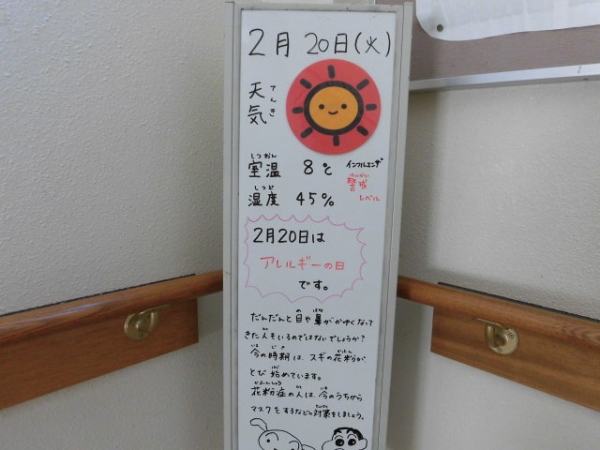 2月 20日(火)
天気
てんき
しつおん
室温 8℃ インフルエンザ
けいかい
警戒
しつど
湿度 45% レベル
2月20日は
アレルギーの日
です。
だんだんと目や鼻がかゆくなって
きた人もいるのではないでしょうか?
今の時期は、スギの花粉が
とび始めています。
花粉症の人は、今のうちから
マスクをするなどの対策をしましょう。